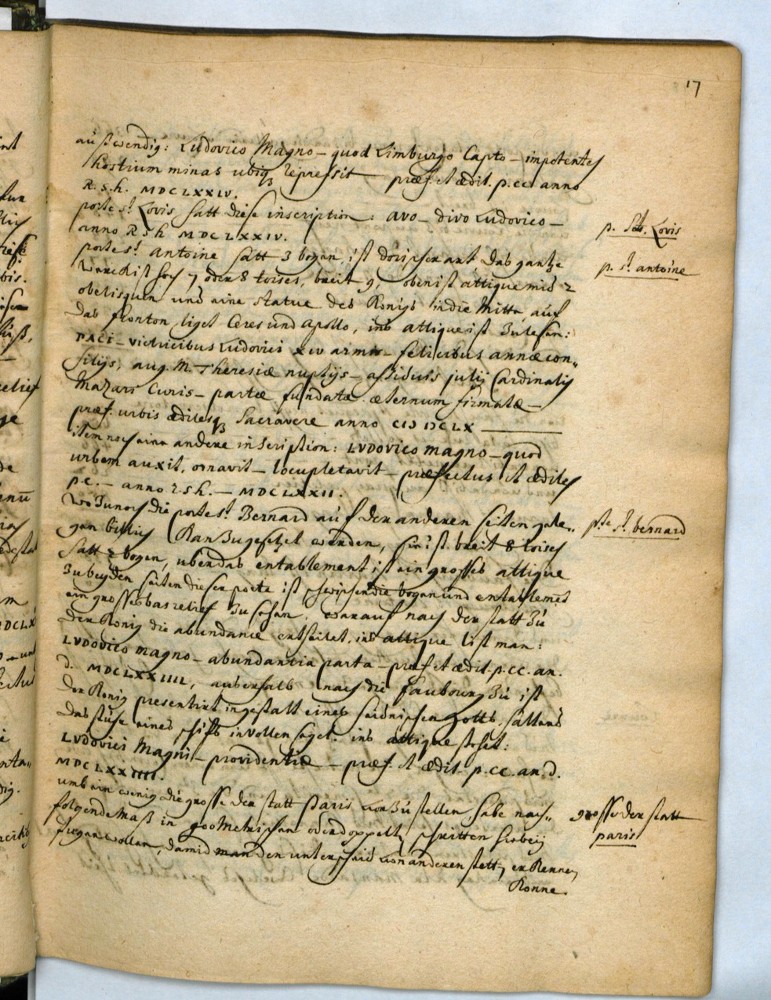 17
außwendig: Ludovico Magno – quod Limburgo Capto – impotentes
hostium minas ubiq3 repressit – præf. et ædil. p. cc. anno
R. s. h. MDCLXXIV.
porte St. Lovis, hatt diese inscription: avo – divo Ludovico –
anno R. s. h. MDCLXXIV.
p. St. Lovis
porte St. Antoine hatt 3 bogen ist dorischer art das gantze
p. St. antoine
werck ist hoch 7 oder 8 toises, breit 9, oben ist attique mit 2
obelisquen und eine statue des Königs in die Mitte, auf
das fronton liget Ceres und Apollo, ins attique ist zu lesen:
PACI – victricibus Ludovici XIV armis – felicibus annæ con-
silijs, aug. M. Theresiæ nuptijs – assiduis julij Cardinalis
Mazarini Curis – partæ fundatæ æternum firmatæ –
præf. urbis ædilesq3 Sacravere anno CIƆ IƆCLX
item noch eine andere inscription: LVDovico magno – quod
urbem auxit, ornavit – locupletavit – præfectus et ædiles
p. c. – anno r. s. h. – MDCLXXII.
wo zu noch die porte St. Bernard auf der anderen seiten gele-
pte. St. bernard
gen billich kan zugesetzet werden, sie ist breit 8 toises
hatt 2 bogen, uber das entablement ist ein grosses attique
zu beyden seiten dieser porte ist zwischen die bogen und entablement
ein grosses bas relief zu sehen, worauf nach der statt zu
der König die abundance ertheilet, ins attique list man:
LVDovico magno – abundantia parta – præf. et ædil. p. cc. an.
d. MDCLXXIIII, ausserhalb nach die fauboung zu ist
der König presentirt in gestalt eines heidnischen gotts, haltend
das stüer eines schifs in vollen segel. ins attique stehet:
LVDovici Magni – providentiæ – præf. et ædil. p. cc. an. d.
MDCLXXIIII.
umb ein wenig die grosse der statt Paris vor zu stellen habe nach-
grosse der statt
paris
folgende Maß in geometrischen oder doppelte schritten hierbeij
fügen wollen, damid man den unterscheid von anderen stetten erkennen
Konne.